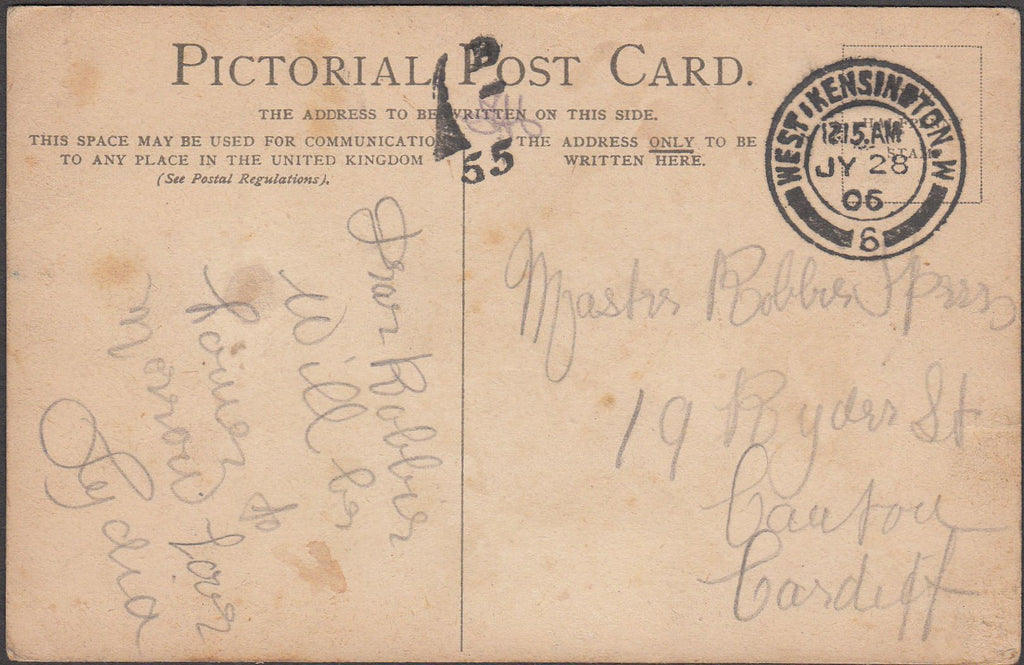 PICTORIAL POST CARD.
THE ADDRESS TO BE WRITTEN ON THIS SIDE.
THIS SPACE MAY BE USED FOR COMMUNICATION
TO ANY PLACE IN THE UNITED KINGDOM
(See Postal Regulations).
THE ADDRESS ONLY TO BE
WRITTEN HERE.
55
WEST KENSINGTON. W
12.15. AM
JY 28
06
6
Dear Robbie
Will be
home to
morrow love
Lydia
Master Robbie
19 Ryder St
Canton
Cardiff